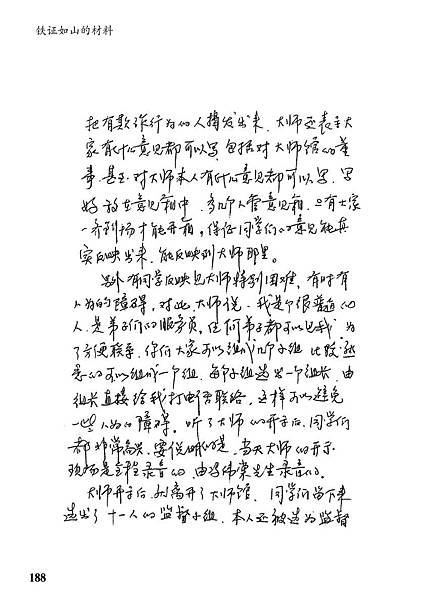 铁证如山的材料
把有欺诈行为的人揭发出来。大师还表示大
家有什么意见都可以写，包括对大师馆的董
事，甚至对大师本人有什么意见都可以写，写
好放在意见箱中，多几个人管意见箱，只有大家
一齐到场才能开箱，保证同学们的意见能真
实反映出来，能反映到大师那里。
另外有同学反映见大师特别困难，有时有
人为的障碍，对此，大师说，我是个很普通的
人，是弟子们的服务员，任何弟子都可以见我，为
了方便联系，你们大家可以组成几个小组，比较熟
悉的可以组成一个组，每个小组选出一个组长，由
组长直接给我打电话联络，这样可以避免
一些人为的障碍。听了大师的开示后，同学们
都非常高兴，要说明的是，当天大师的开示
现场是全程录音的，由 伟荣先生录音的。
大师开示后，就离开了大师馆，同学们留下来
选出了十一人的监督小组，本人还被选为监督
188